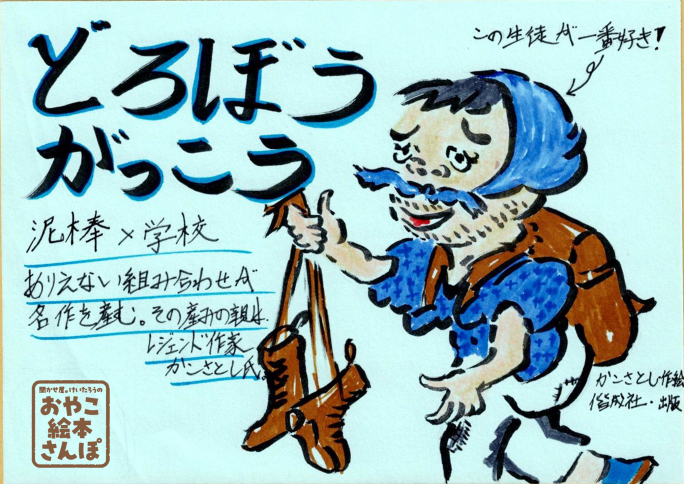 どろぼう
がっこう
この生徒が一番好き!
泥棒×学校
ありえない組み合わせが
名作を産む。その産みの親は、
レジェンド作家
かこさとし氏。
かこさとし作絵
偕成社・出版
聞かせ屋。けいたろうの
おやこ
絵本
さんぽ